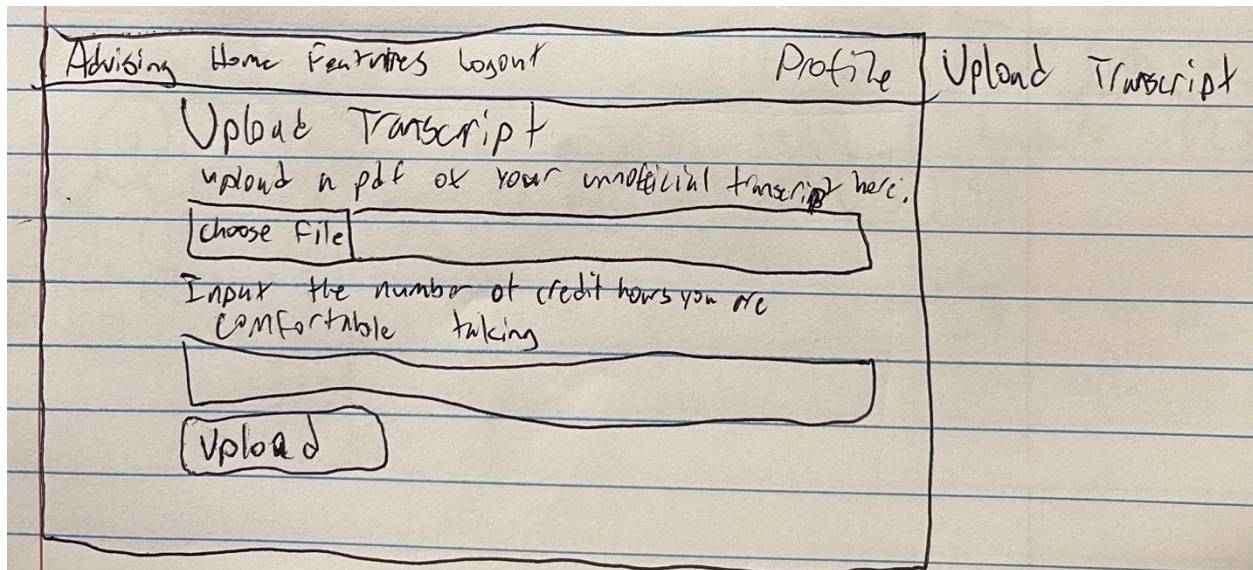 Advising Home Features Logout Profile
Upload Transcript
Upload Transcript
upload a pdf of your unofficial transcript here.
choose file
Input the number of credit hours you are
comfortable taking
Upload